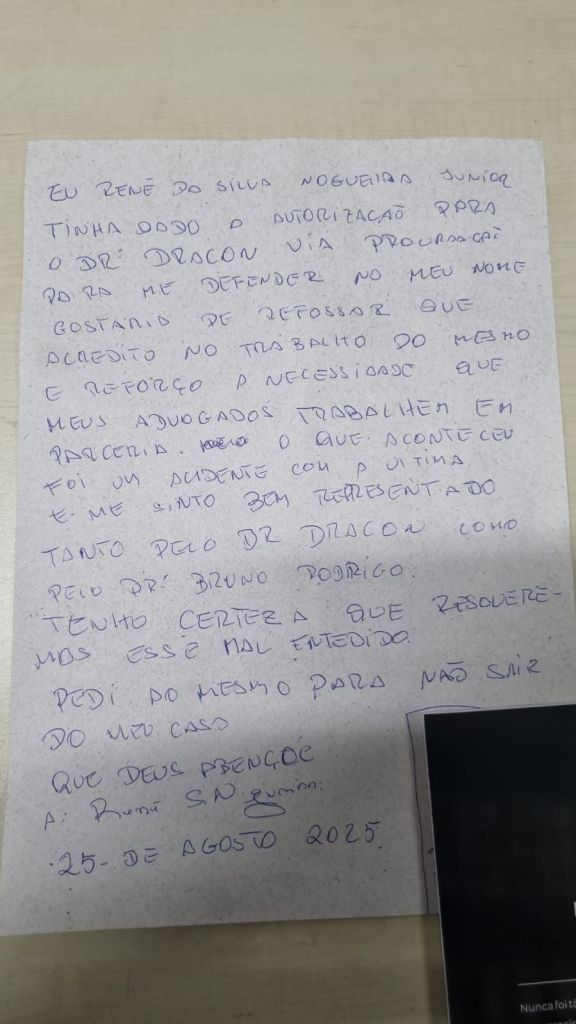 EU RENÉ DA SILVA NOGUEIRA JUNIOR
TINHA DADO A AUTORIZAÇÃO PARA
O DR. DRACON VIA
PARA ME DEFENDER NO MEU NOME
GOSTARIA DE REFOSSAR QUE
ACREDITO NO TRABALHO DO MESMO
E REFORÇO A NECESSIDADE QUE
MEUS ADVOGADOS TRABALHEM EM
PARCERIA. O QUE ACONTECEU
FOI UM ACIDENTE COM A VITIMA
E ME SINTO BEM REPRESENTADO
TANTO PELO DR DRACON COMO
PELO DR. BRUNO RODRIGO.
TENHO CERTEZA QUE RESOLVERE-
MOS ESSE MAL ENTEDIDO.
PEDI AO MESMO PARA NÃO SAIR
DO MEU CASO
QUE DEUS ABENÇOE
A: René SN
25- DE AGOSTO 2025.
Nunca foi tã